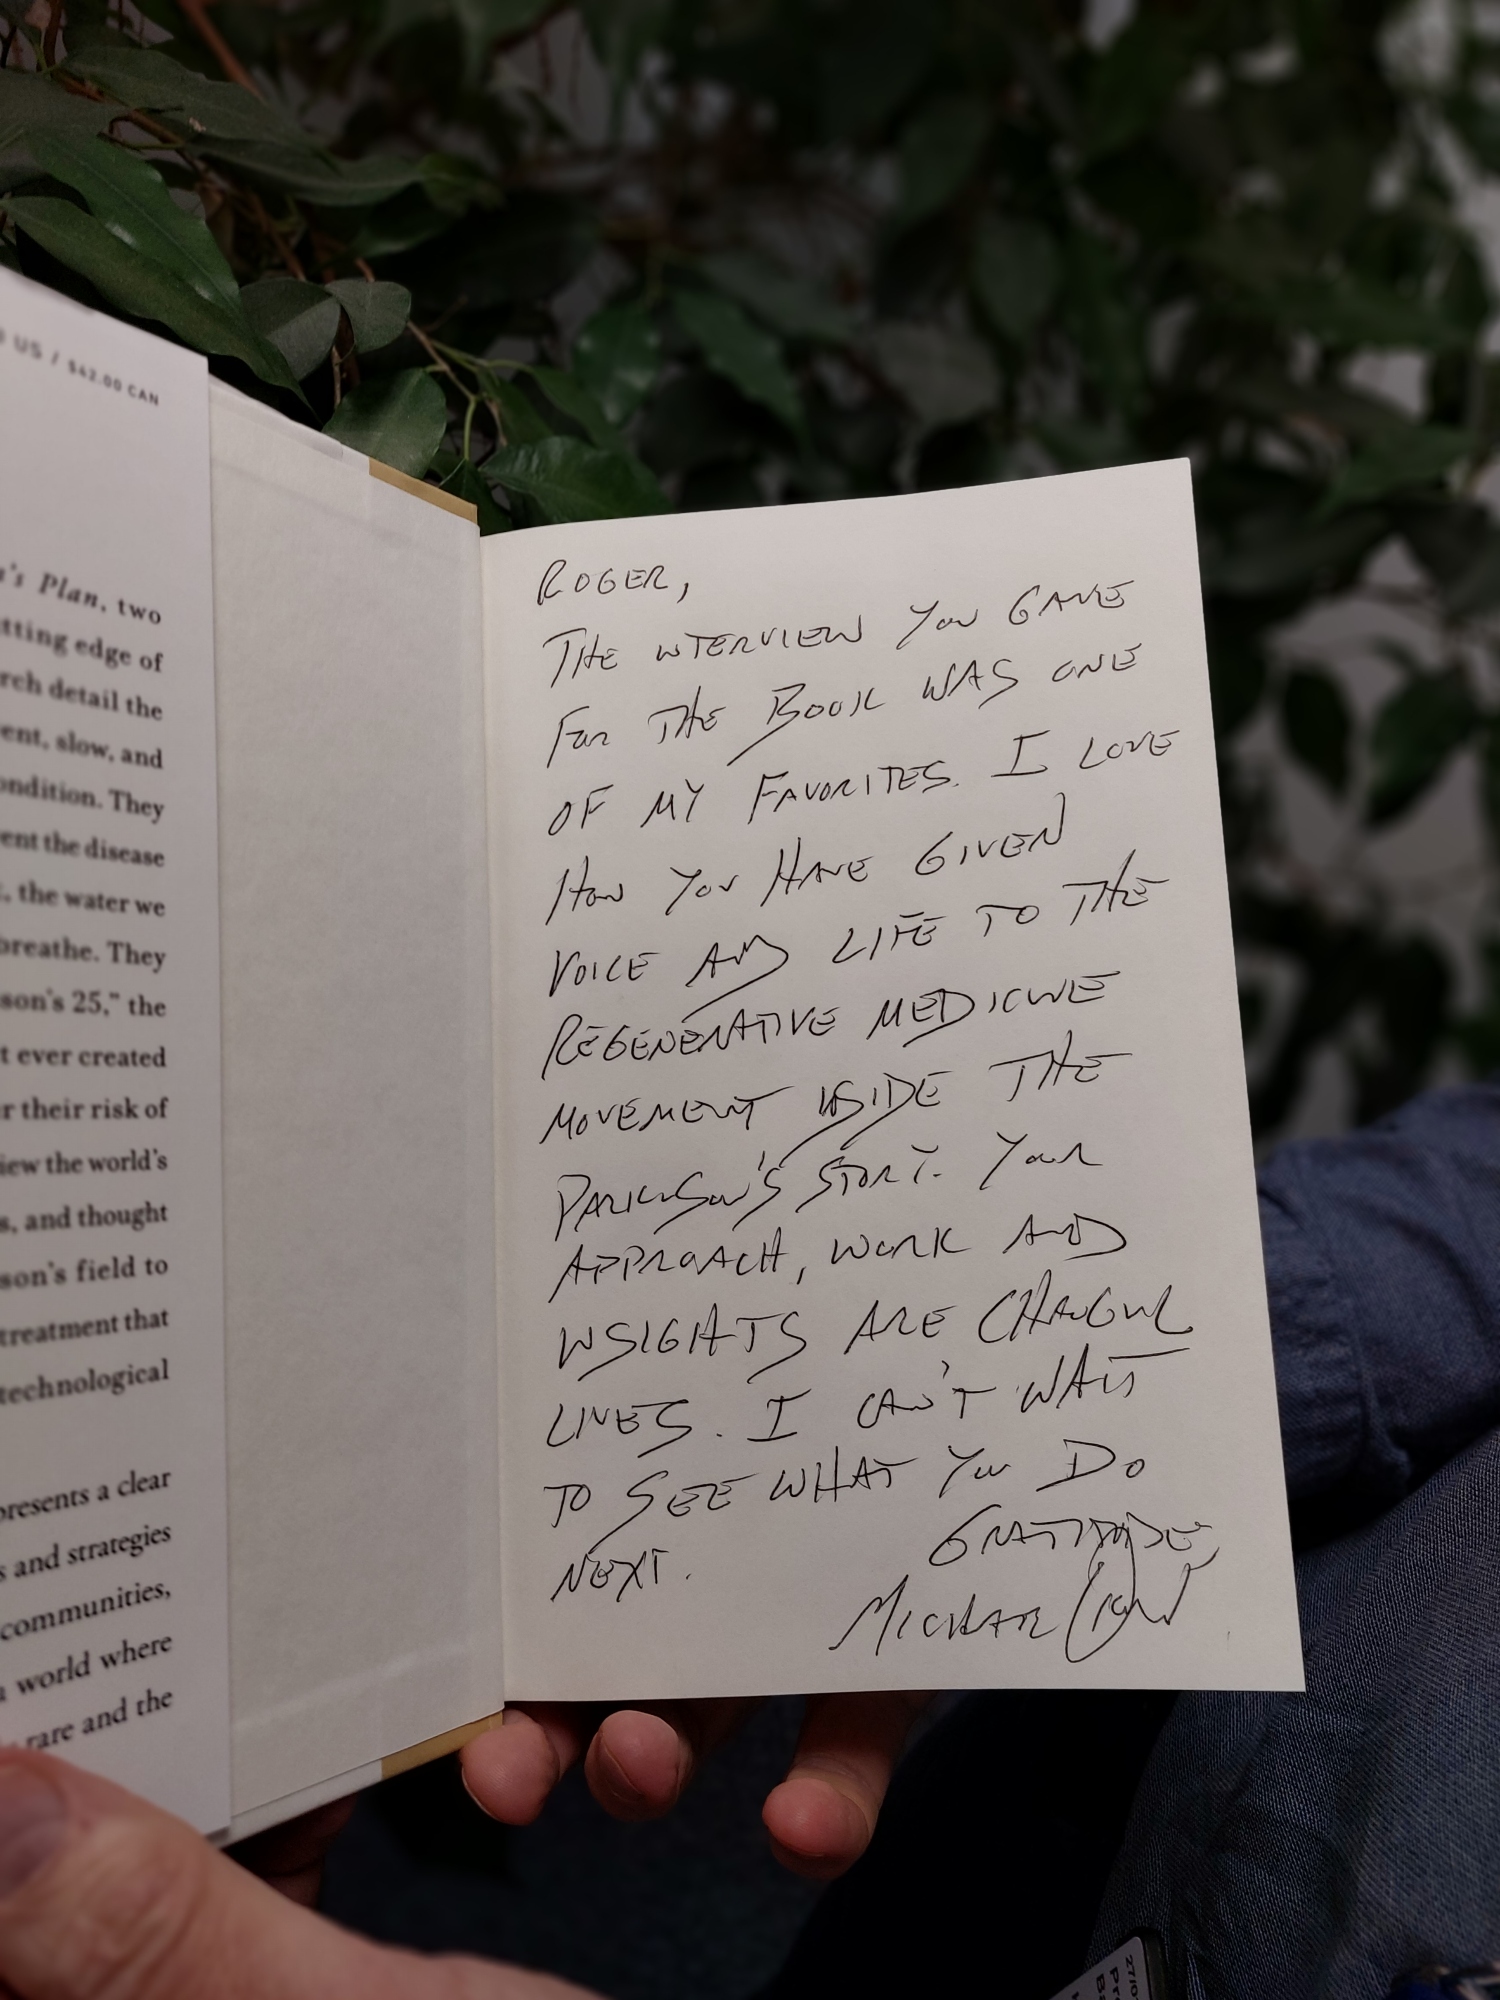 US / $42.00 CAN
Plan, two
edge of
detail the
slow, and
They
the disease
the water we
breathe. They
25," the
ever created
their risk of
the world's
and thought
field to
treatment that
technological
a clear
and strategies
communities,
world where
rare and the
ROGER,
THE INTERVIEW YOU GAVE
FOR THE BOOK WAS ONE
OF MY FAVORITES. I LOVE
HOW YOU HAVE GIVEN
VOICE AND LIFE TO THE
REGENERATIVE MEDICINE
MOVEMENT INSIDE THE
PARKINSON'S STORY. YOUR
APPROACH, WORK AND
INSIGHTS ARE CHANGING
LIVES. I CAN'T WAIT
TO SEE WHAT YOU DO
NEXT.
GRATITUDE,
MICHAEL
27/0